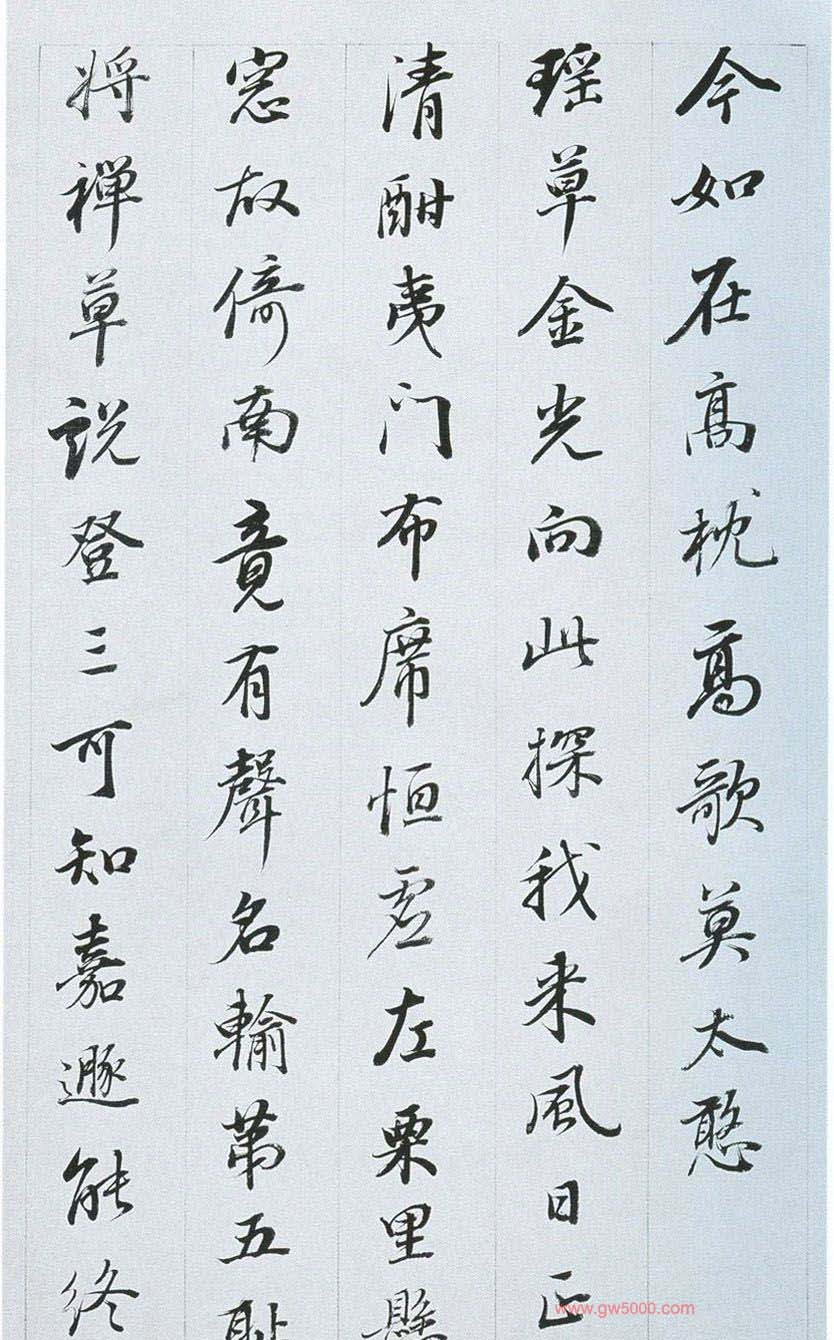 今如在高枕高歌莫太憨
瑶草金光向此探我来風日正
清酣夷门布席恒虚左栗里懸
窓故倚南竟有聲名輸第五耻
将禅草説登三可知嘉遯能终
www.gw5000.com